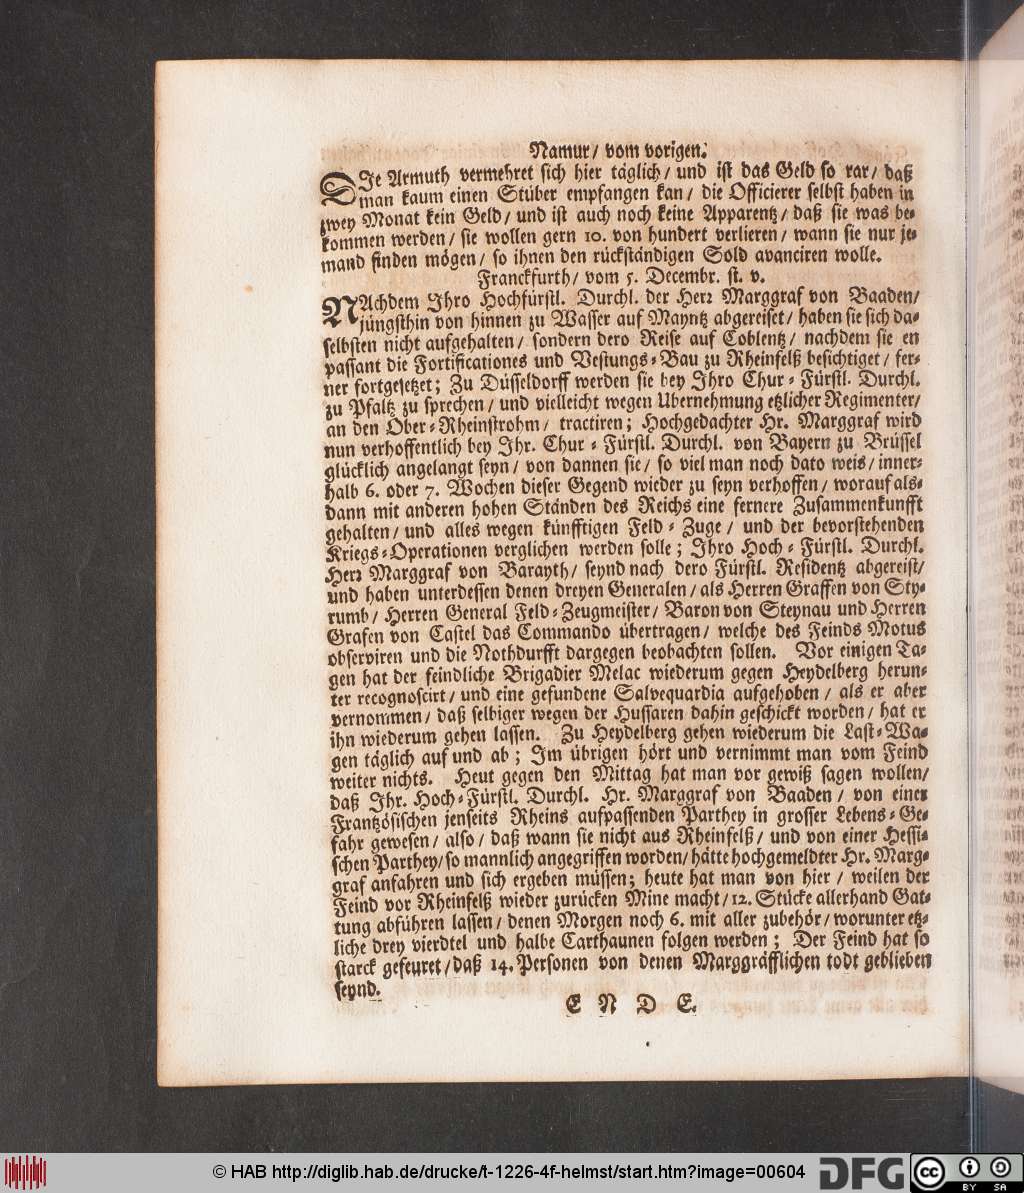 Namur/ vom vorigen.
DIe Armuth vermehret sich hier täglich/ und ist das Geld so rar/ daß
man kaum einen Stüber empfangen kan/ die Officierer selbst haben in
zwey Monat kein Geld/ und ist auch noch keine Apparentz/ daß sie was be-
kommen werden/ sie wollen gern 10. von hundert verlieren/ wann sie nur je-
mand finden mögen/ so ihnen den rückständigen Sold avanciren wolle.
Franckfurth/ vom 5. Decembr. st. v.
NAchdem Ihro Hochfürstl. Durchl. der Herr Marggraf von Baaden/
jüngsthin von hinnen zu Wasser auf Mayntz abgereiset/ haben sie sich da-
selbsten nicht aufgehalten/ sondern dero Reise auf Coblentz/ nachdem sie en
passant die Fortificationes und Vestungs-Bau zu Rheinfelß besichtiget/ fer-
ner fortgesetzet; Zu Düsseldorff werden sie bey Ihro Chur-Fürstl. Durchl.
zu Pfaltz zu sprechen/ und vielleicht wegen Ubernehmung etzlicher Regimenter/
an den Ober-Rheinstrohm/ tractiren; Hochgedachter Hr. Marggraf wird
nun verhoffentlich bey Ihr. Chur-Fürstl. Durchl. von Bayern zu Brüssel
glücklich angelangt seyn/ von dannen sie/ so viel man noch dato weis/ inner-
halb 6. oder 7. Wochen dieser Gegend wieder zu seyn verhoffen/ worauf als-
dann mit anderen hohen Ständen des Reichs eine fernere Zusammenkunfft
gehalten/ und alles wegen künfftigen Feld-Zuge/ und der bevorstehenden
Kriegs-Operationen verglichen werden solle; Ihro Hoch-Fürstl. Durchl.
Herr Marggraf von Barayth/ seynd nach dero Fürstl. Residentz abgereist/
und haben unterdessen denen dreyen Generalen/ als Herren Graffen von Sty-
rumb/ Herren General Feld-Zeugmeister/ Baron von Steynau und Herren
Grafen von Castel das Commando übertragen/ welche des Feinds Motus
observiren und die Nothdurfft dargegen beobachten sollen. Vor einigen Ta-
gen hat der feindliche Brigadier Melac wiederum gegen Heydelberg herun-
ter recognoscirt/ und eine gefundene Salvequardia aufgehoben/ als er aber
vernommen/ daß selbiger wegen der Hussaren dahin geschickt worden/ hat er
ihn wiederum gehen lassen. Zu Heydelberg gehen wiederum die Last-Wa-
gen täglich auf und ab; Im übrigen hört und vernimmt man vom Feind
weiter nichts. Heut gegen den Mittag hat man vor gewiß sagen wollen/
daß Ihr. Hoch-Fürstl. Durchl. Hr. Marggraf von Baaden/ von einer
Frantzösischen jenseits Rheins aufpassenden Parthey in grosser Lebens-Ge-
fahr gewesen/ also/ daß wann sie nicht aus Rheinfelß/ und von einer Hessi-
schen Parthey/ so mannlich angegriffen worden/ hätte hochgemeldter Hr. Marg-
graf anfahren und sich ergeben müssen; heute hat man von hier/ weilen der
Feind vor Rheinfelß wieder zurücken Mine macht/ 12. Stücke allerhand Gat-
tung abführen lassen/ denen Morgen noch 6. mit aller zubehör/ worunter etz-
liche drey vierdtel und halbe Carthaunen folgen werden; Der Feind hat so
starck gefeuret/ daß 14. Personen von denen Marggräfflichen todt geblieben
seynd.
E N D E.
© HAB http://diglib.hab.de/drucke/t-1226-4f-helmst/start.htm?image=00604
DFG
cc BY SA